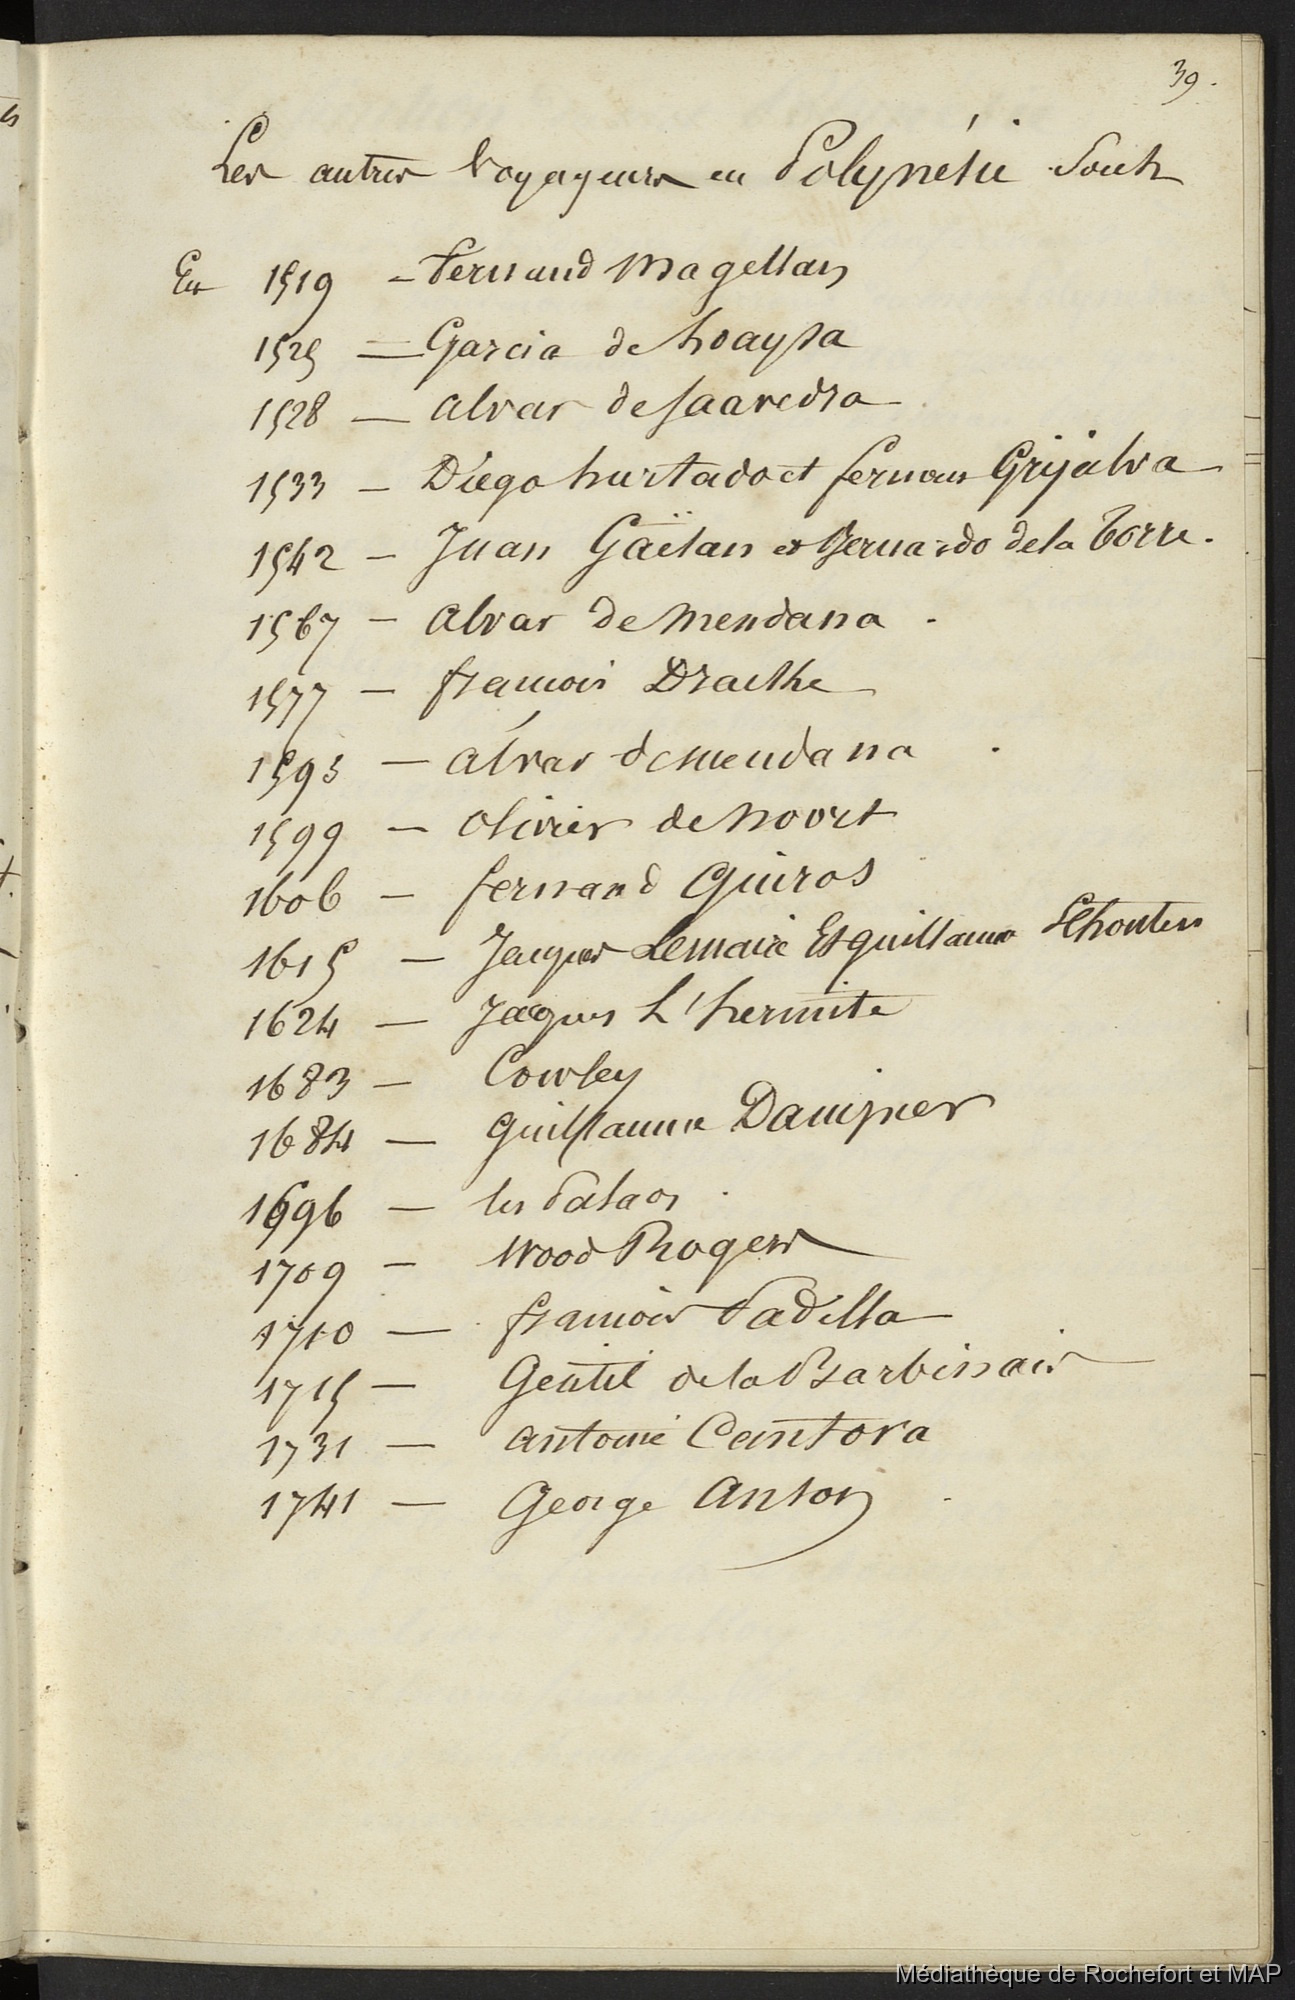 39.
Les autres Voyageurs en Polynésie Sont
En 1519 - Fernand Magellan
1525 — Garcia de hoaysa
1528 — alvar de saavedra
1533 — Diego hurtado et fernan Grijalva
1542 — Juan Gaëtan et Bernardo de la Torre.
1567 — alvar de Mendana.
1577 — françois Dracke
1595 — alvar de mendana.
1599 — olivier de noort
1606 — fernand Quiros
1615 — Jacques Lemaire Et guillaume Schouten
1624 — Jacques L'hermite
1683 — Cowley
1684 — Guillaume Dampier
1696 — les Palaos.
1709 — Wood Rogers
1710 — françois Padilla
1715 — Gentil de la Barbinais
1731 — antoine Cantova
1741 — George Anson
Médiathèque de Rochefort et MAP